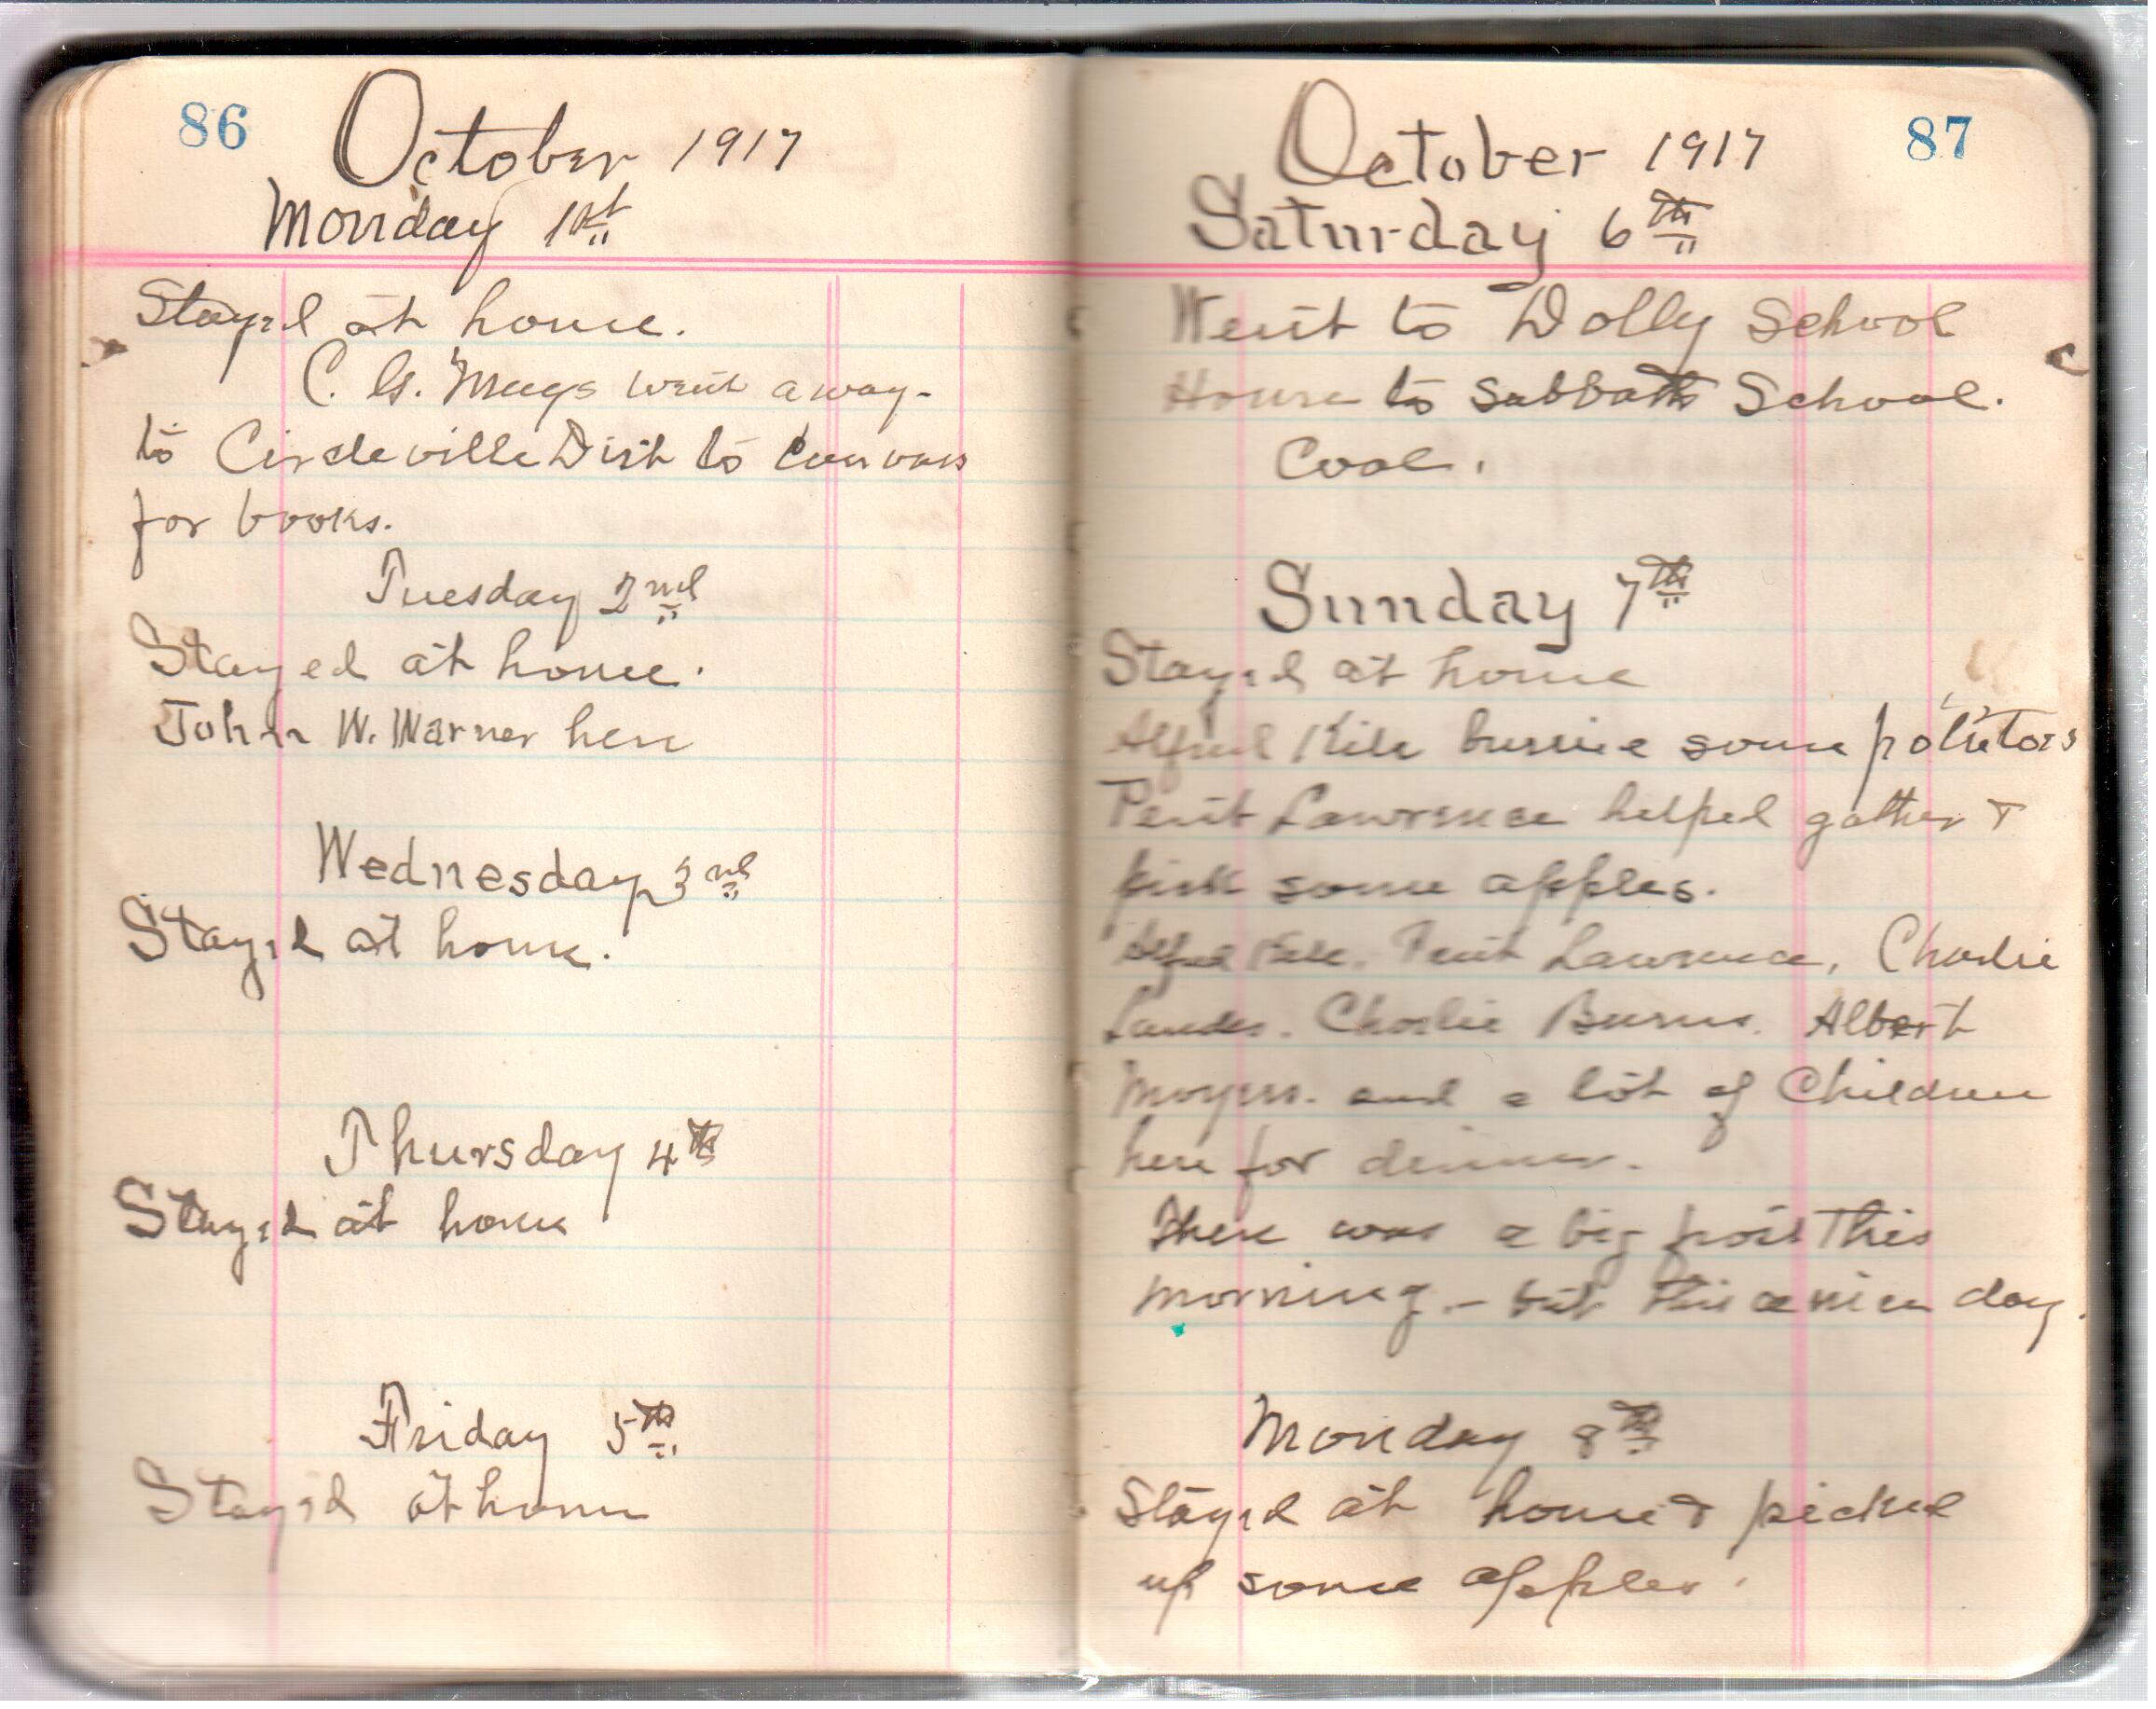 86
October 1917
Monday 1st
Stayed at home.
C. G. went away
to Circleville Dist to canvass
for books.
Tuesday 2nd
Stayed at home.
John W. Warner here
Wednesday 3rd
Stayed at home.
Thursday 4th
Stayed at home
Friday 5th
Stayed at home
87
October 1917
Saturday 6th
Went to Dolly School
House to Sabbath School.
Cool.
Sunday 7th
Stayed at home
Alfred Kile some
Lawrence helped gather &
pick some apples.
Alfred Kile. Lawrence, Charlie
Landes. Charlie Burns. Albert
Moyers. and a lot of Children
here for dinner.
There was a big frost this
morning - but a nice day.
Monday 8th
Stayed at home & picked
up some apples.